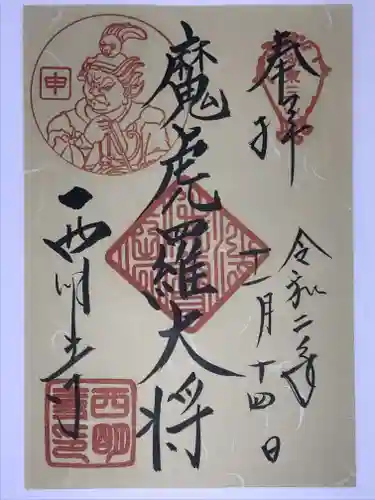 奉拝
令和二年
十一月十四日
魔虎羅大将
西明寺
申
西明